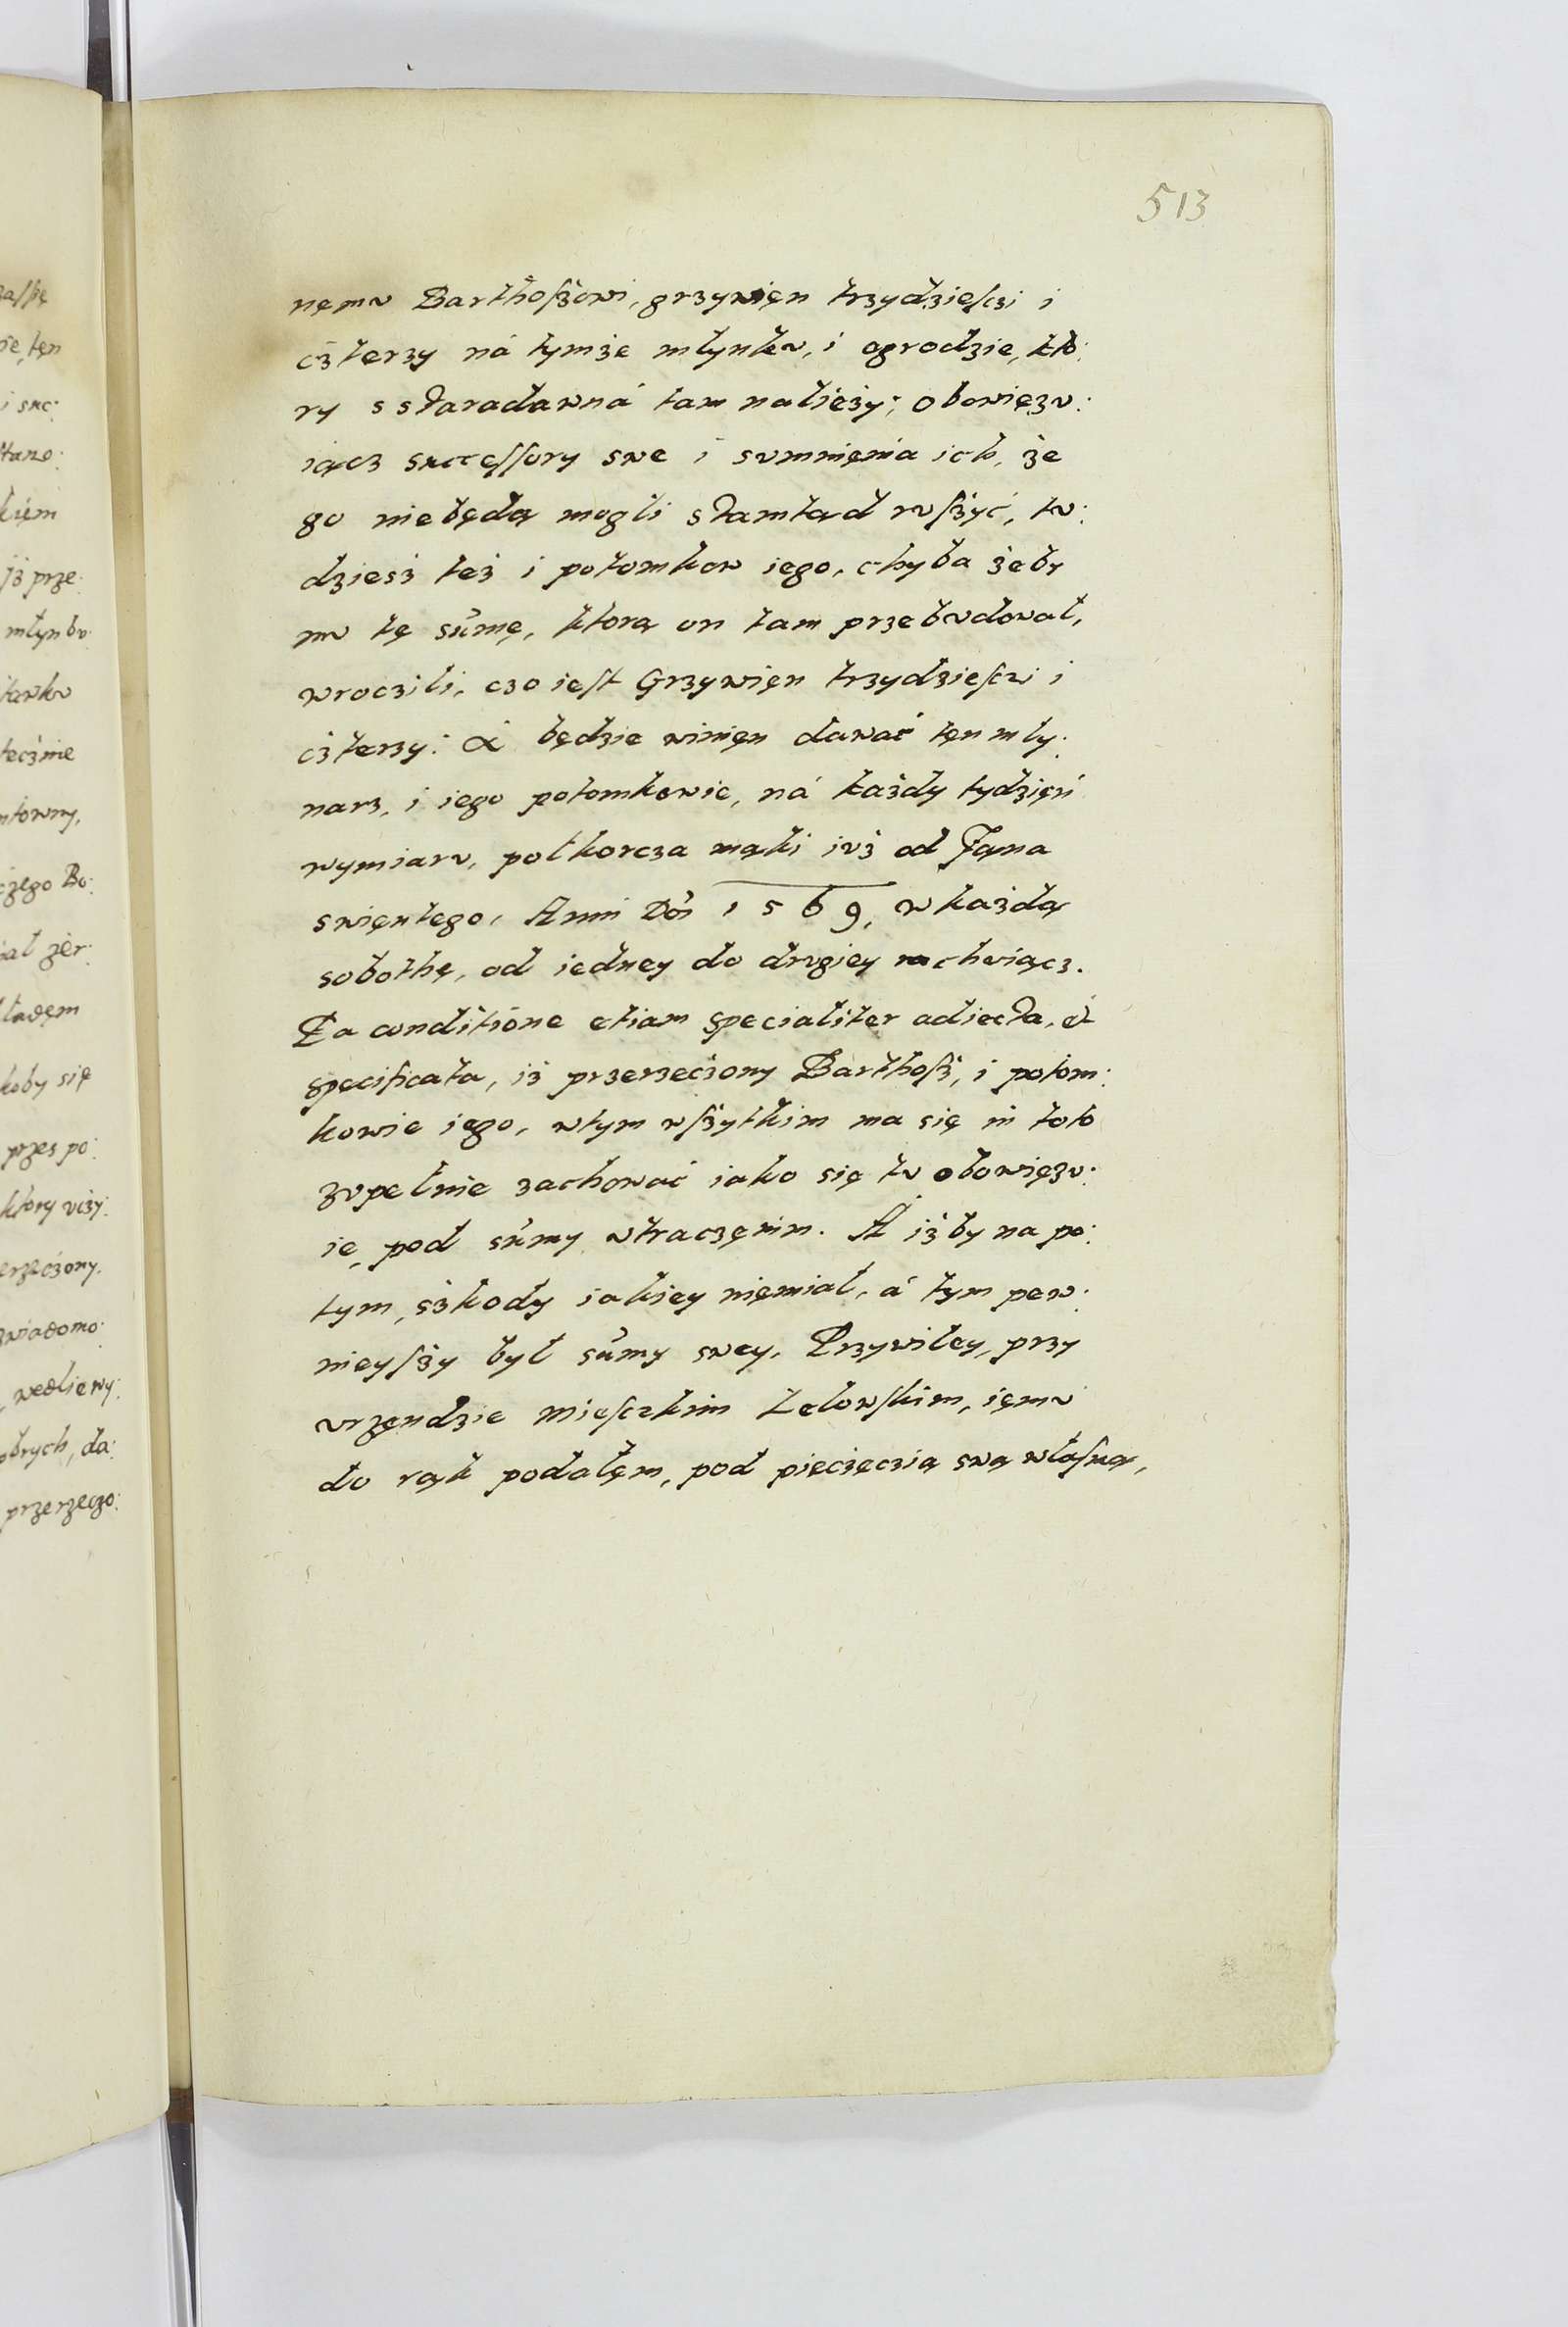 513
nęmv Barthoſżowi, grzywięn trzydzieſczi i
cżterzy ná tymże młynkv, i ogrodzie, kto:
ry s staradawná tam należy; obowięzv:
iącz succęſſory swe i svmnięnia ich, że
go niebędą mogli stamtąd rvſżyć, tv:
dziesż też i potomkow iego, chyba żeby
mv tę sum̄ę, ktorą on tam przebvdował,
wroczili, czo ieſt Grzywięn trzydzieſczi i
cżterzy: A będzie winięn dawać tęn mły:
narz, i iego potomkowie, ná każdy tydzięń
wymiarv, połkorcza mąki ivż od Jąna
swiętego, Anni Dni 1569, w każdą
sobothę, od iedney do drvgiey rachviącz.
Ea conditióne etiam specialiter adiecta, et
spęcificata, iż przerzecżony Barthoſż, i potom:
kowie iego, wtym wſżytkim ma się in toto
zvpełnie zachowáć iako się tv obowięzv:
ie, pod sum̄y vtraczęnim. A iżby na po:
tym, sżkody iakiey nięmiał, á tym pew:
nieyſży był sum̄y swey, Przywiley, przy
vrzęndzie Mieſczkim Lelowſkim, ięmv
do rąk podałęm, pod pięcżęczią swą własną,
zaſkę
ie, tęn
i suc:
stano:
kięm
jż prze:
młyn bv:
tawkv
tecżnie
ntowny,
cżego Bo:
iał żer:
ładęm
koby się
przes po:
ktory vcży:
erzecżony.
zwiadomo:
, wedlie wy:
obrych, da:
przerzeczo: